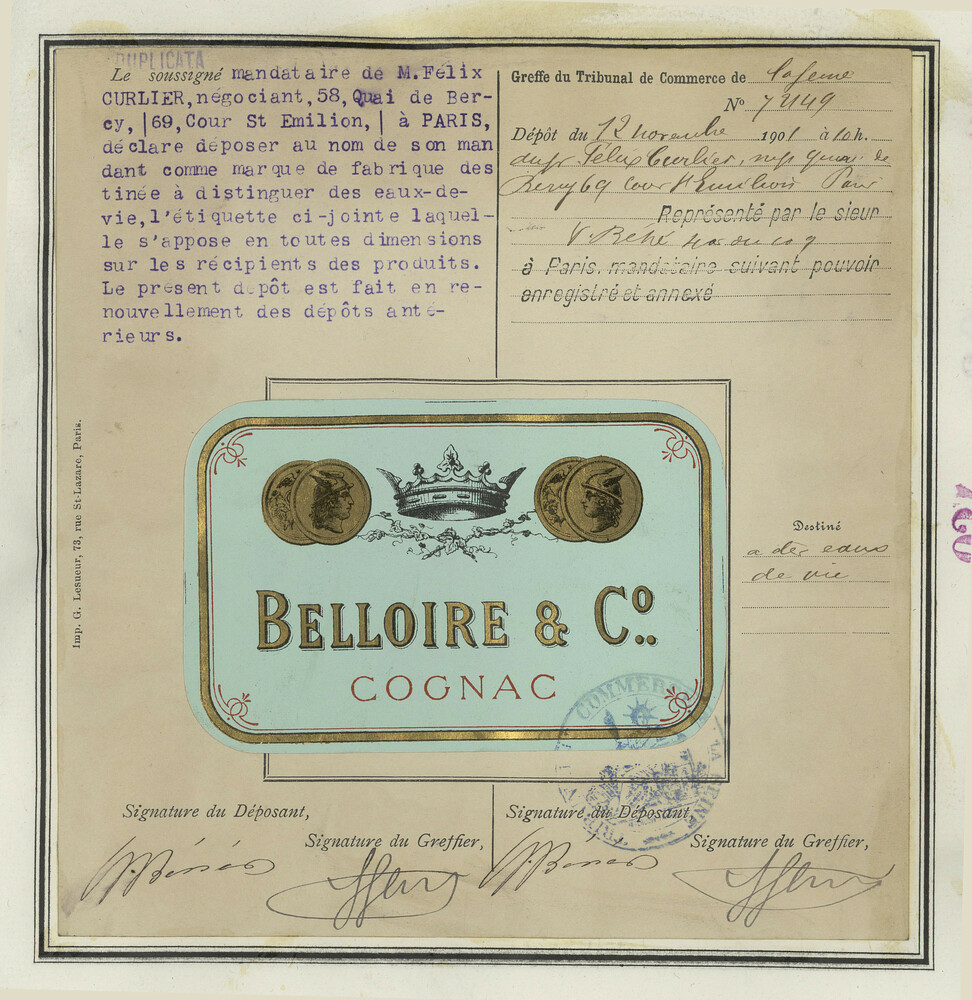 DUPLICATA
Le soussigné mandataire de M.Félix
CURLIER,négociant,58,Quai de Ber-
cy,|69,Cour St Emilion,| à PARIS,
déclare déposer au nom de son man
dant comme marque de fabrique des
tinée à distinguer des eaux-de-
vie,l'étiquette ci-jointe laquel-
le s'appose en toutes dimensions
sur les récipients des produits.
Le présent dépôt est fait en re-
nouvellement des dépôts anté-
rieurs.
Greffe du Tribunal de Commerce de la Seine
No
Dépôt du 12 novembre 1901 à 10h.
Félix Curlier, Quai de
Bercy 69 Cour St Emilion Paris
Représenté par le sieur
à Paris. mandataire suivant pouvoir
enregistré et annexé
Imp. G. Lesueur, 73, rue St-Lazare, Paris.
BELLOIRE & Co..
COGNAC
Destiné
a des eaux
de vie
COMMERCE
LA SEINE
Signature du Déposant,
Signature du Greffier,
Signature du Déposant,
Signature du Greffier,